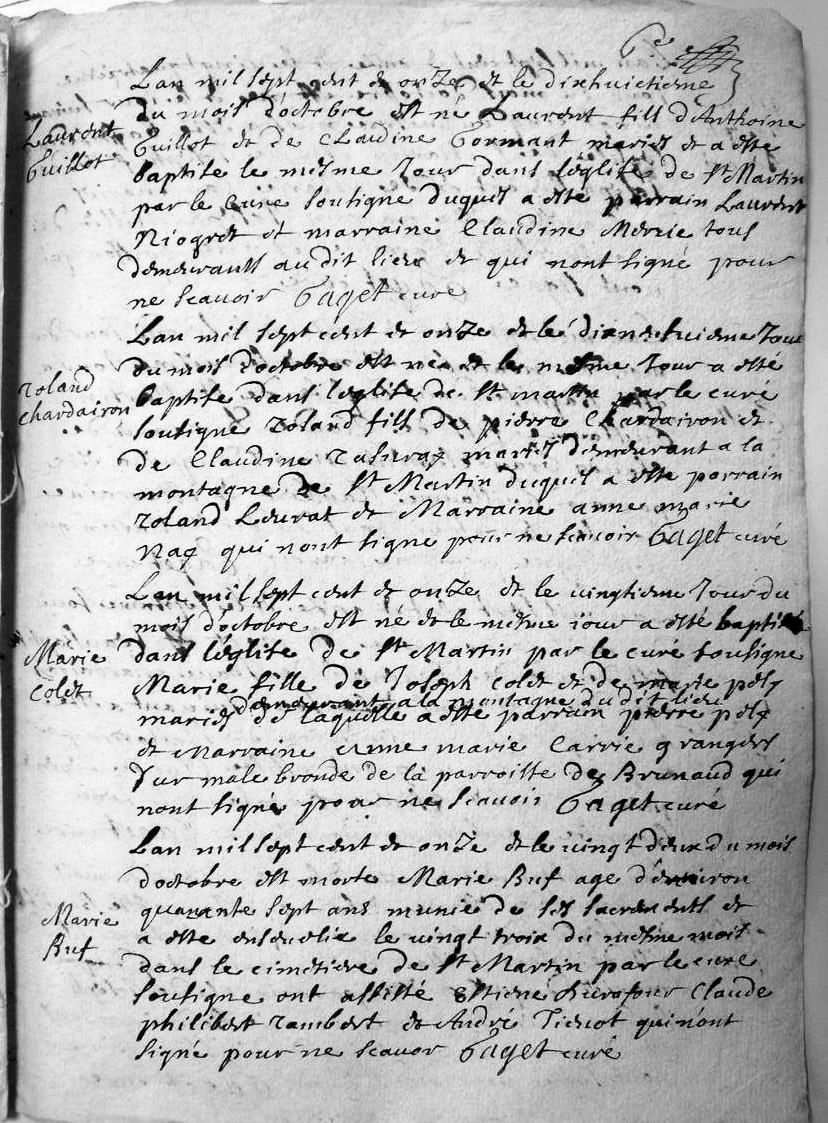 6e
Lan mil sept cent et onze et le dixhuictieme
du mois d'octobre est né Laurent fill d'Anthoine
Laurent
Guillot
Guillot et de Claudine Gormant mariés et a esté
baptise le mesme Jour dans léglise de St Martin
par le Cure soubigne duquel a este parrain Laurent
Niogret et marraine Claudine Mercie tous
demeurants au dit lieu et qui nont signé pour
ne scavoir Gaget curé
Lan mil sept cent et onze et le dixneufuieme Jour
du mois d'octobre est née et le mesme Jour a esté
Roland
Chardairon
baptise dans léglise de St martin par le curé
soutigne Roland fill de pierre Chardairon et
de Claudine mariés demeurant a la
montagne de St Martin duquel a este parrain
Roland Leurat et Marraine anne marie
Naz qui nont signe pour ne scavoir Gaget curé
Lan mil sept cent et onze et le vingtieme Jour du
mois d'octobre est né et le mesme iour a esté baptisé
Marie
Colet
dans léglise de St Martin par le curé soutigne
Marie fille de Joseph colet et de marie pelz
demeurant a la montagne du dit lieu
mariés de laquelle a esté parrain pierre pelz
et Marraine Anne marie Carrie grangers
sur male bronde de la parroisse de Brunaud qui
nont signé pour ne scavoir Gaget curé
Lan mil sept cent et onze et le vingt deux du mois
d'octobre est morte Marie Buf age d'environ
Marie
Buf
quarante sept ans munie de ses sacrements et
a este ensevelie le vingt trois du mesme mois
dans le cimetiere de St Martin par le cure
soutigne ont assisté Estiene Claude
philibert rambert et André Tienot qui n'ont
signé pour ne scavoir Gaget curé